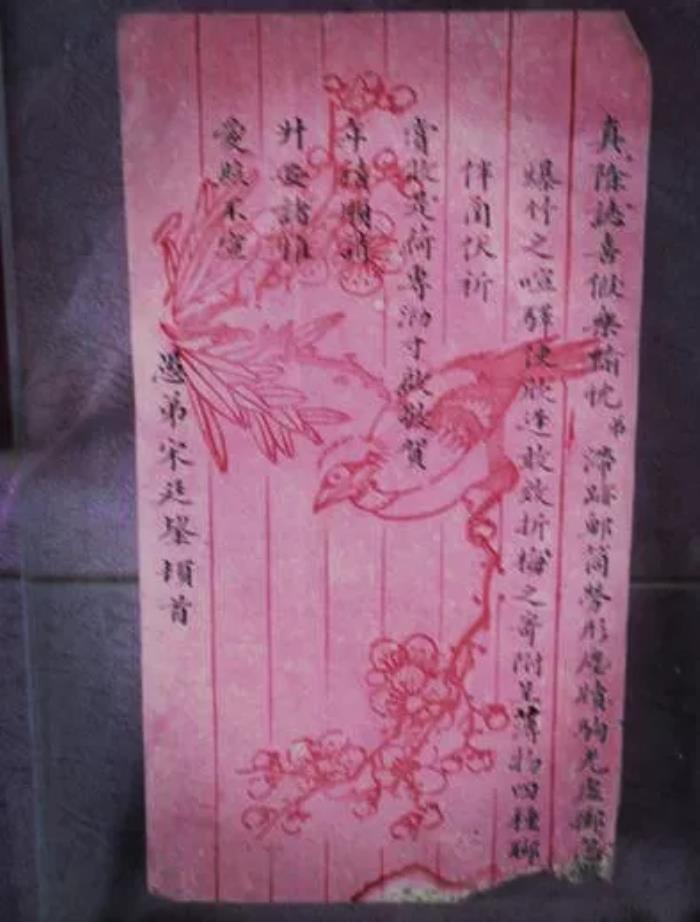 真除誌喜樂愉忱弟滯跡郵筒勞形牘駒光虛擲
爆竹之喧驛使欣逢敢效折梅之寄附呈薄物四種聊
伴函伏祈
賞收是荷專泐寸啟敬賀
年禧順請
升安諸維
愛照不宣
愚弟宋廷頓首